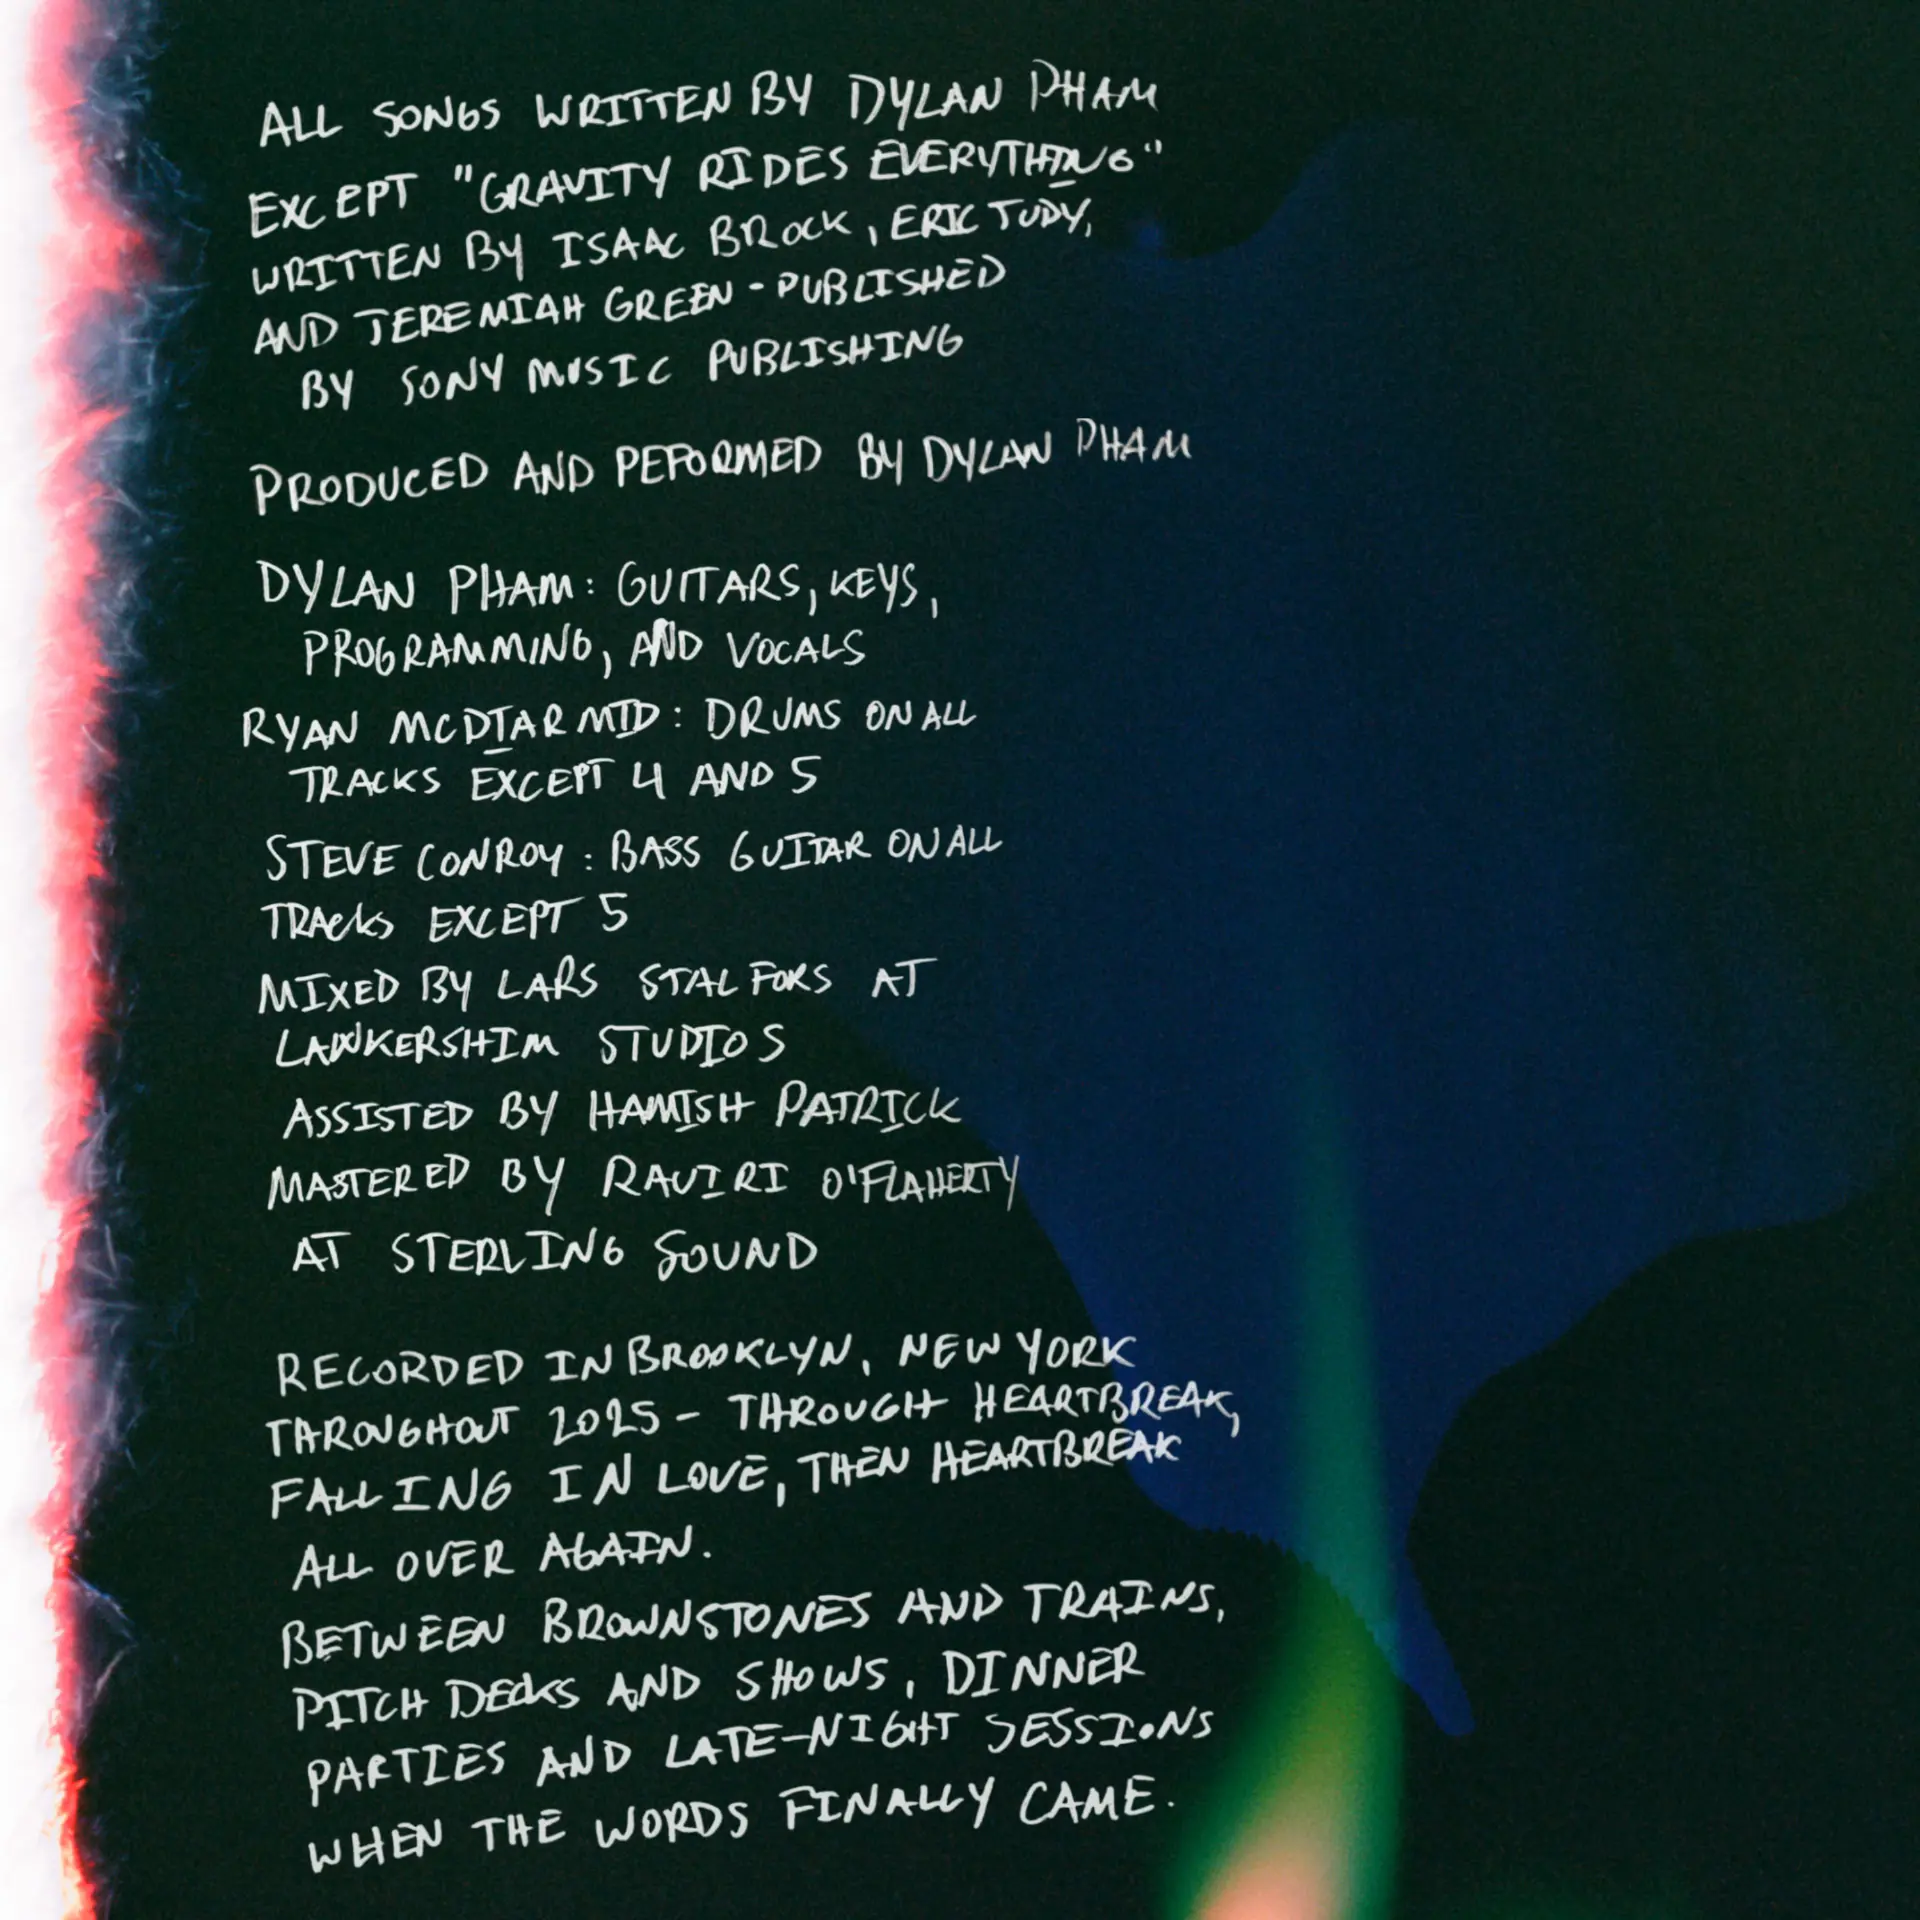 ALL SONGS WRITTEN BY DYLAN PHAM
EXCEPT "GRAVITY RIDES EVERYTHING"
WRITTEN BY ISAAC BROCK, ERIC JUDY,
AND JEREMIAH GREEN - PUBLISHED
BY SONY MUSIC PUBLISHING
PRODUCED AND PEFORMED BY DYLAN PHAM
DYLAN PHAM: GUITARS, KEYS,
PROGRAMMING, AND VOCALS
RYAN MCDIARMID: DRUMS ON ALL
TRACKS EXCEPT 4 AND 5
STEVE CONROY: BASS GUITAR ON ALL
TRACKS EXCEPT 5
MIXED BY LARS STALFORS AT
LANKERSHIM STUDIOS
ASSISTED BY HAMISH PATRICK
MASTERED BY RAUIRI O'FLAHERTY
AT STERLING SOUND
RECORDED IN BROOKLYN, NEW YORK
THROUGHOUT 2025 - THROUGH HEARTBREAK,
FALLING IN LOVE, THEN HEARTBREAK
ALL OVER AGAIN.
BETWEEN BROWNSTONES AND TRAINS,
PITCH DECKS AND SHOWS, DINNER
PARTIES AND LATE-NIGHT SESSIONS
WHEN THE WORDS FINALLY CAME.